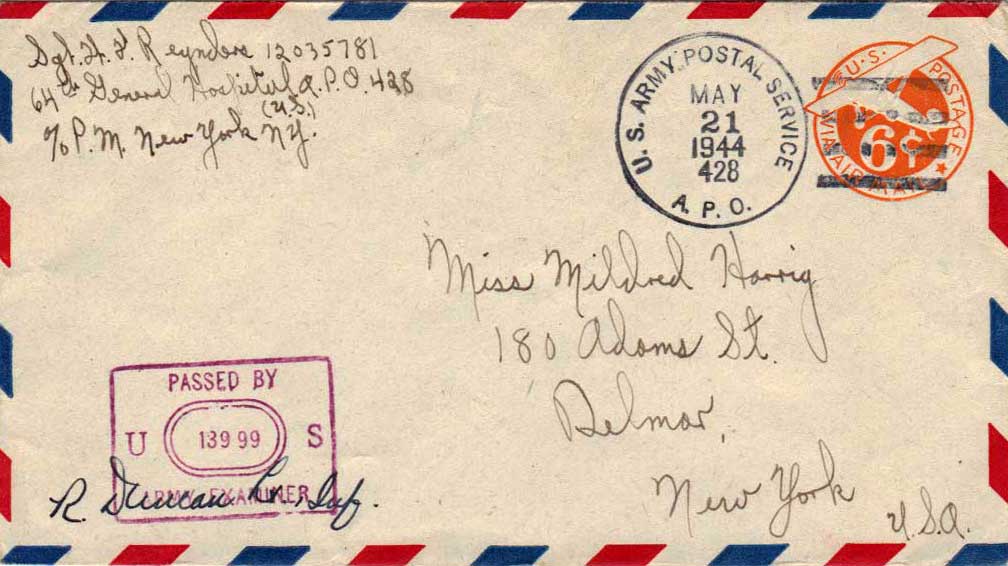 Sgt. H. F. Reynders 12035781
64th General Hospital A.P.O. 428
(U.S.)
℅ P.M. New York N.Y.
U. S. ARMY POSTAL SERVICE
MAY
21
1944
428
A. P. O.
U.S. POSTAGE
6¢
VIA AIR MAIL
Miss Mildred Harrig
180 Adams St.
Delmar,
New York
U.S.A.
PASSED BY
U 13999 S
ARMY EXAMINER
R. Duncan Inf.